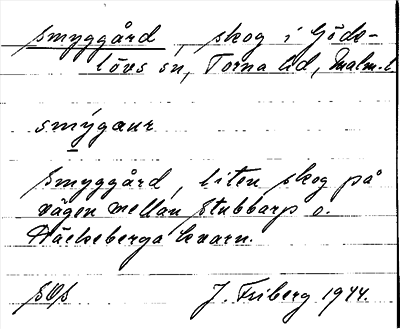 Smyggård, skog i Göds-
lövs sn, Torna hd, Malm. l.
smýgaur
Smyggård, liten skog på
vägen mellan Stubbarp o.
Häckeberga kvarn.
SOS J. Friberg 1944.